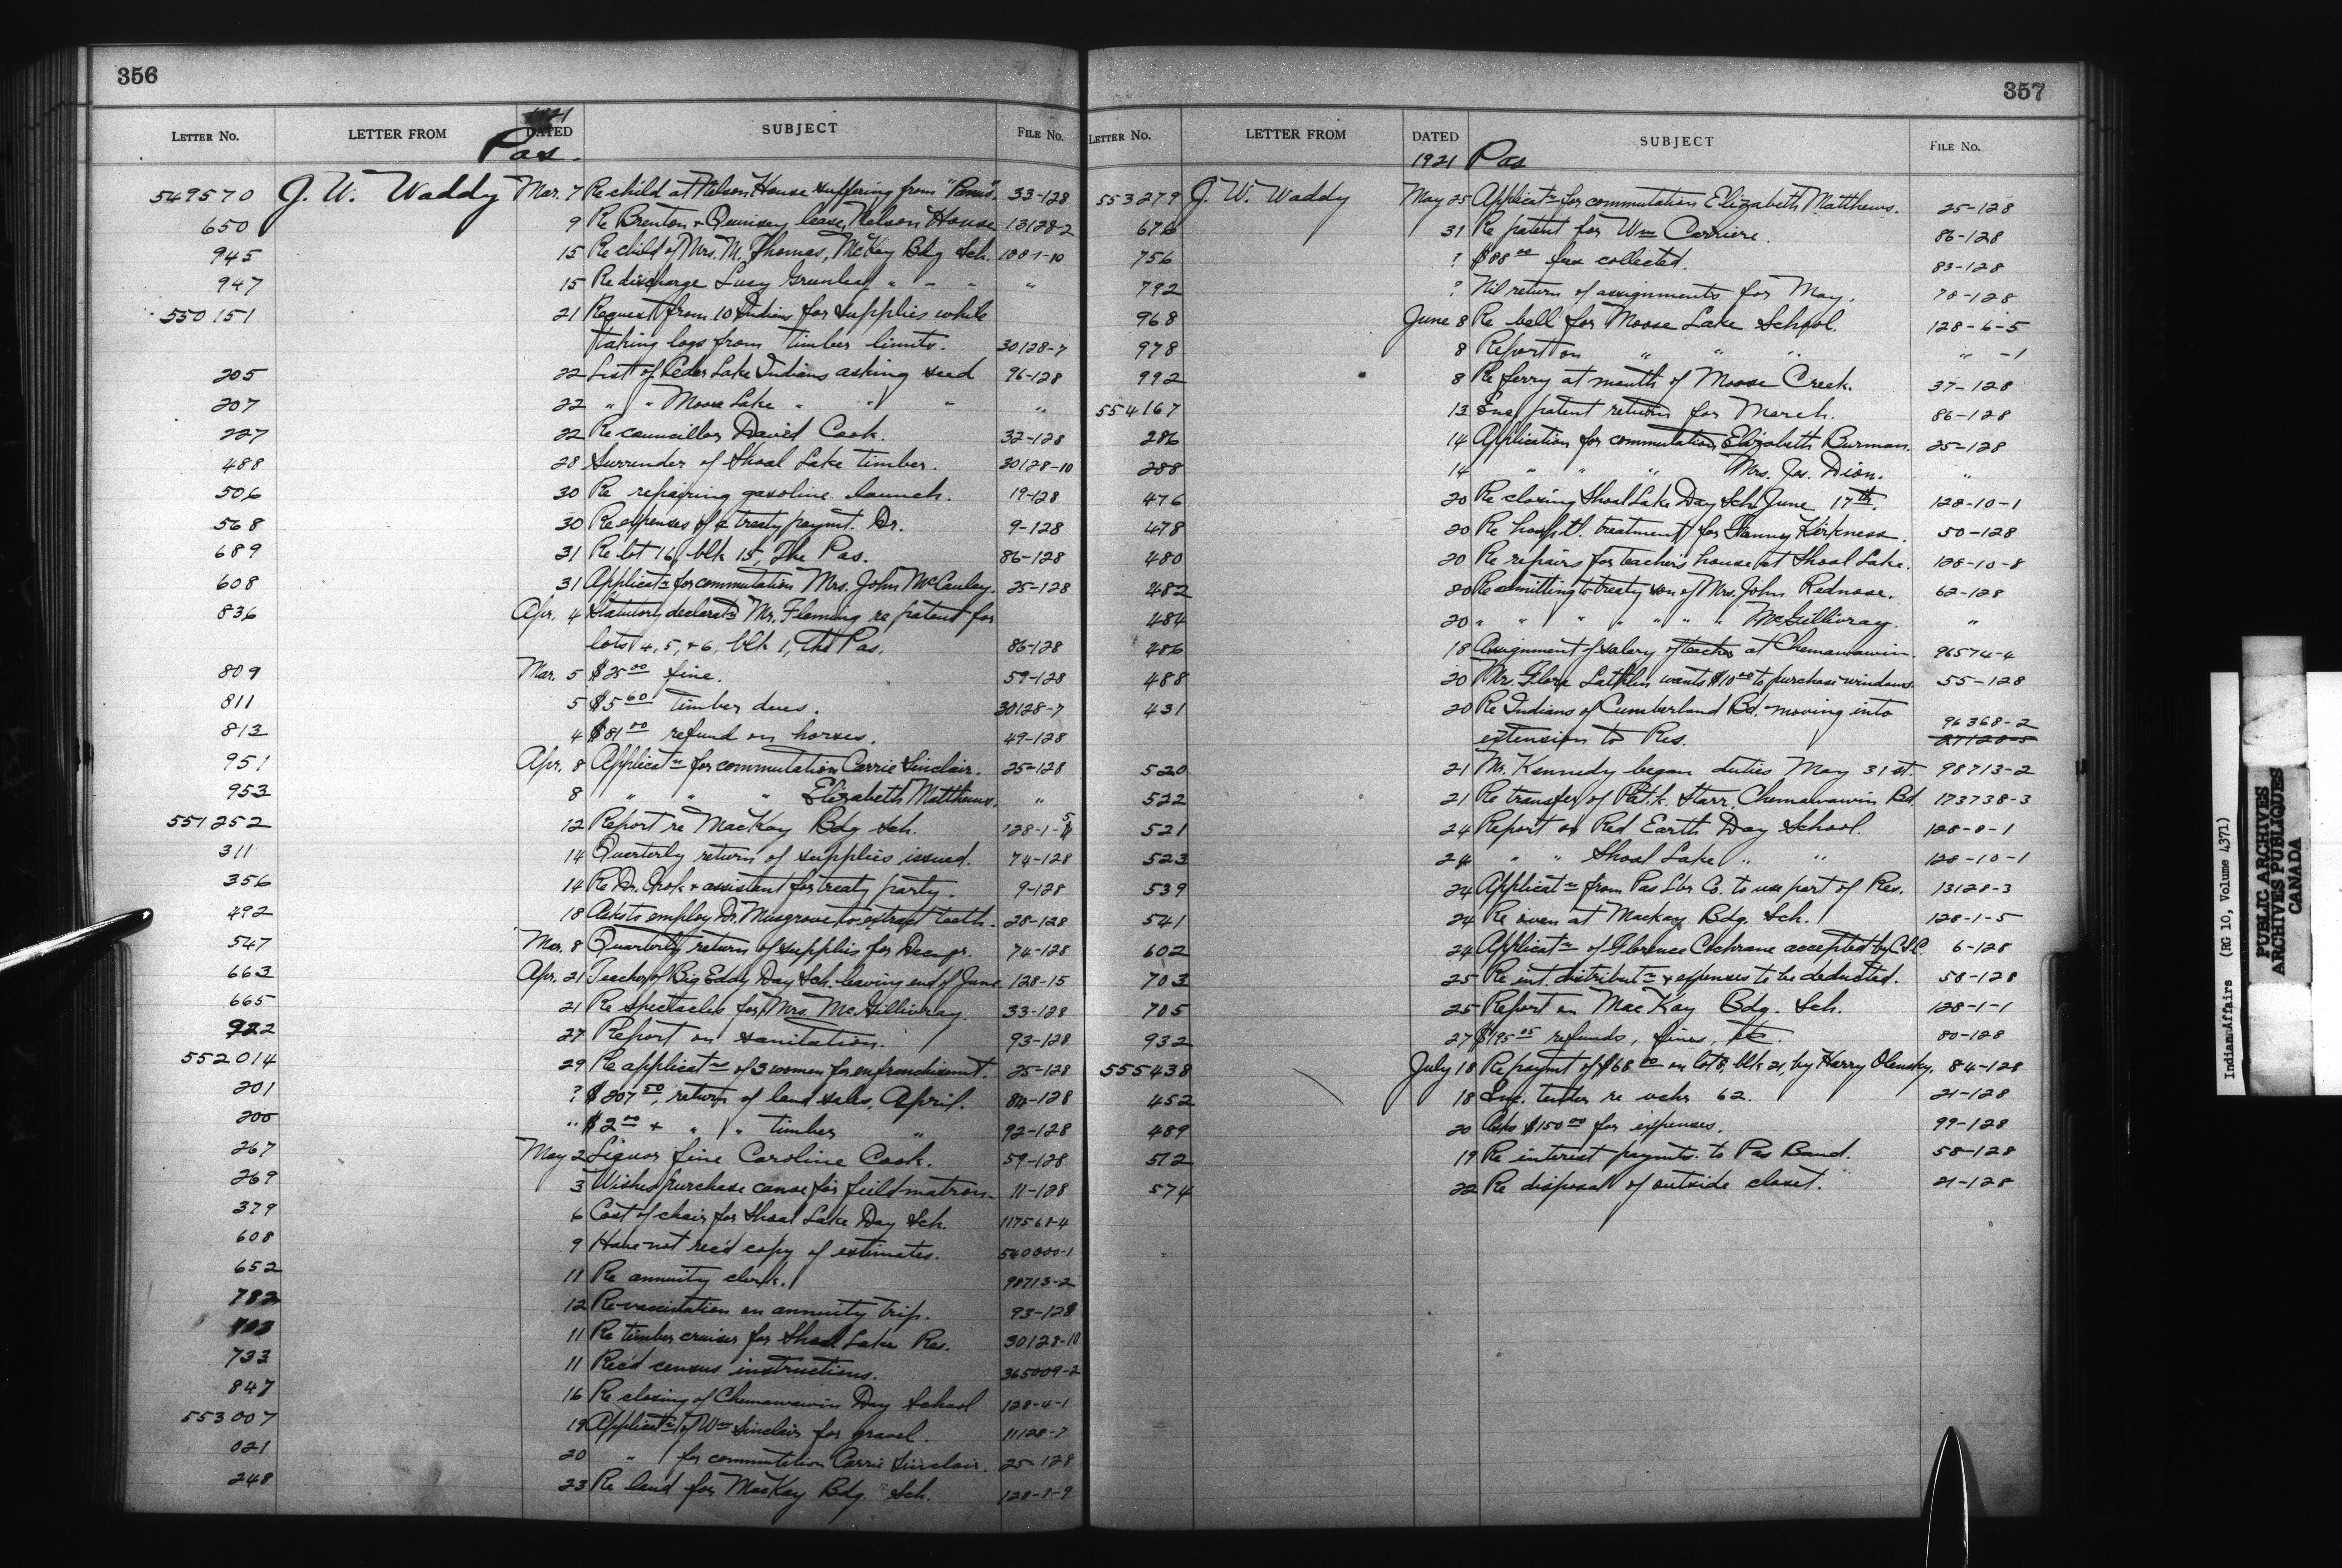 356
1921
LETTER No. LETTER FROM DATED SUBJECT FILE No.
Pas.
549570 J. W. Waddy Mar. 7 Re child at Nelson House suffering from 33-128
650 9 Re Brenton + lease, Nelson House 13128-2
945 15 Re child of Mrs. M. Thomas, McKay Bdg Sch. 128-1-10
947 15 Re discharge Lucy " - - "
550151 21 Request from 10 Indians for supplies while
taking logs from timber limits. 30128-7
205 22 List of Ceder Lake Indians asking seed 96-128
207 22 " " Moose Lake " " " "
227 22 Re councillor David Cook. 32-128
488 28 Surrender of Shoal Lake timber. 30128-10
506 30 Re repairing gasoline launch. 19-128
568 30 Re expenses of a treaty paymt. Dr. 9-128
689 31 Re lot 16, blk 15, The Pas. 86-128
608 31 Applicatn for commutation Mrs. John McCauley. 25-128
836 Apr. 4 Statutory declaratn Mr. Fleming re patent for
lots 4, 5, + 6, blk 1, The Pas. 86-128
809 Mar. 5 $25.00 fine. 59-128
811 5 $5.60 timber dues. 30128-7
813 4 $81.00 refund on horses. 49-128
951 Apr. 8 Applicatn for commutation Carrie Sinclair. 25-128
953 8 " " " Elizabeth Matthews. "
551252 12 Report re MacKay Bdg Sch. 128-1-5
311 14 Quarterly return of supplies issued. 74-128
356 14 Re Dr. + assistant for treaty party. 9-128
492 18 Asks to employ Dr. Musgrove to extract teeth. 28-128
547 Mar. 8 Quarterly return of supplies for Decr. 74-128
663 Apr. 21 Teacher of Big Eddy Day Sch. leaving end of June. 128-15
665 21 Re spectacles for Mrs. McGillivray. 33-128
922 27 Report on sanitation. 93-128
552014 29 Re applicatn of 3 women for enfranchisemt. 25-128
201 ? $207.50, return of land sales, April. 84-128
200 " $2.00 + " " timber " 92-128
267 May 2 Liquor fine Caroline Cook. 59-128
269 3 Wishes purchase canoe for field matron. 11-128
379 6 Cost of chair for Shoal Lake Day Sch. 117568-4
608 9 Have not rec'd copy of estimates. 540000-1
652 11 Re annuity clerk. 98713-2
782 12 Re vaccination on annuity trip. 93-128
11 Re timber cruiser for Shoal Lake Res. 30128-10
733 11 Rec'd census instructions. 365009-2
847 16 Re closing of Chemawawin Day School 128-4-1
553007 19 Applicatn of Wm Sinclair for gravel. 11128-7
021 20 " for commutation Carrie Sinclair. 25-128
248 23 Re land for MacKay Bdg. Sch. 128-1-9
357
LETTER No. LETTER FROM DATED SUBJECT FILE No.
1921 Pas
553279 J. W. Waddy May 25 Applicatn for commutation Elizabeth Matthews. 25-128
676 31 Re patent for Wm Carriere. 86-128
756 ? $88.00 tax collected. 83-128
792 ? Nil return of assignments for May. 78-128
968 June 8 Re bell for Moose Lake School. 128-6-5
978 8 Report on " " " " -1
992 8 Re ferry at mouth of Moose Creek. 37-128
554167 13 Enc. patent return for March. 86-128
286 14 Application for commutation Elizabeth Burman. 25-128
288 14 " " " Mrs. Jas. Dion. "
476 20 Re closing Shoal Lake Day Sch. June 17th. 128-10-1
478 20 Re hospitl. treatment for Fanny Kirkness. 50-128
480 20 Re repairs for teachers house at Shoal Lake. 128-10-8
482 20 Re admitting to treaty son of Mrs. John Rednose. 62-128
484 20 " " " " " " " McGillivray. "
486 18 Assignment of salary of teacher at Chemawawin. 96574-4
488 20 Mrs. Flora Lathlin wants $10.00 to purchase windows. 55-128
431 20 Re Indians of Cumberland Bd. moving into
extension to Res. 96368-2 27128-5
520 21 Mr. Kennedy began duties May 31st. 98713-2
522 21 Re transfer of Pat. k. Starr, Chemawawin Bd. 173738-3
521 24 Report on Red Earth Day School. 128-8-1
523 24 " " Shoal Lake " " 128-10-1
539 24 Applicatn from Pas Lbr Co. to use part of Res. 13128-3
541 24 Re oven at Mackay Bdg. Sch. 128-1-5
602 24 Applicatn of Florence Cochrane accepted by C.S.C. 6-128
703 25 Re int. distributn + expenses to be deducted. 58-128
705 25 Report on MacKay Bdg. Sch. 128-1-1
932 27 $195.05 refunds, fines, etc. 80-128
555438 July 18 Re paymt of $68.00 on lot 8, blk 21, by Harry Olensky. 84-128
452 18 Enc. tender re vchr 62. 21-128
489 20 Asks $150.00 for expenses. 99-128
512 19 Re interest paymts. to Pas Band. 58-128
574 22 Re disposal of outside closet. 21-128
Indian Affairs (RG 10, Volume 4371)
PUBLIC ARCHIVES
ARCHIVES PUBLIQUES
CANADA